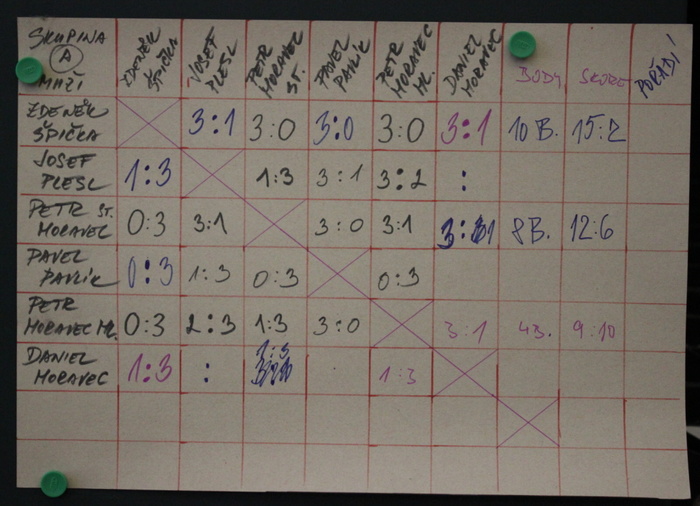 SKUPINA
A
MUŽI
ZDENĚK ŠPIČKA
JOSEF PLESL
PETR MORAVEC ST.
PAVEL PAVLÍK
PETR MORAVEC ML.
DANIEL MORAVEC
BODY
SKORE
POŘADÍ
ZDENĚK
ŠPIČKA
3:1 3:0 3:0 3:0 3:1 10 B. 15:2
JOSEF
PLESL
1:3 1:3 3:1 3:2 :
PETR ST.
MORAVEC
0:3 3:1 3:0 3:1 8B. 12:6
PAVEL
PAVLÍK
0:3 1:3 0:3 0:3
PETR
MORAVEC ML.
0:3 2:3 1:3 3:0 3:1 4B. 9:10
DANIEL
MORAVEC
1:3 : 1:3 1:3